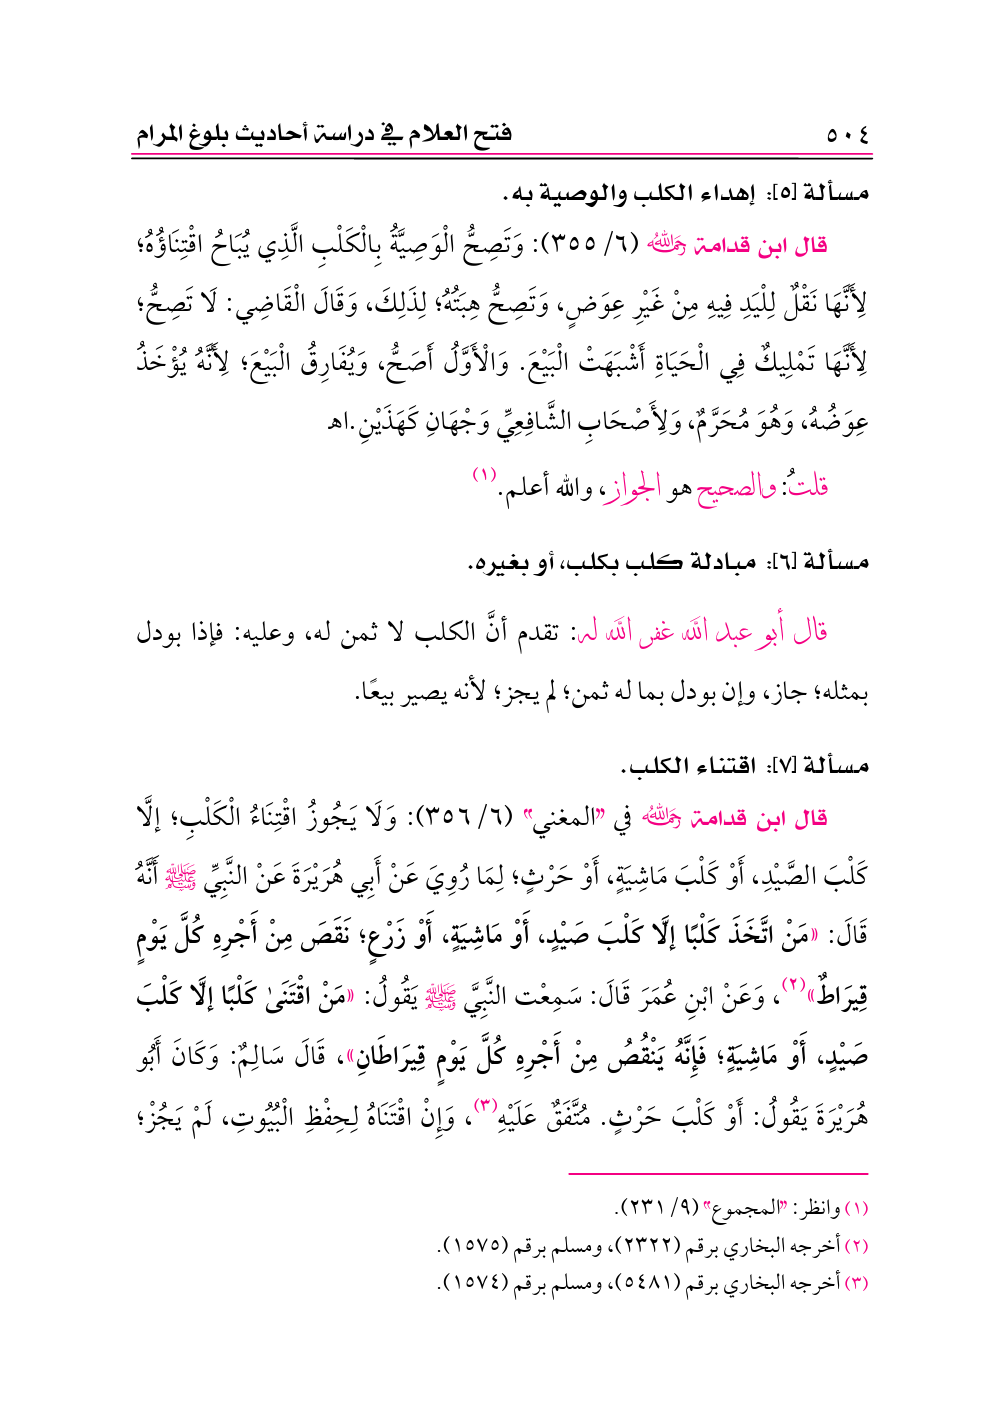 ٥٠٤ فتح العلام في دراسة أحاديث بلوغ المرام
مسألة [٥]: إهداء الكلب والوصية به.
قال ابن قدامة رحمه الله (٦/ ٣٥٥): وَتَصِحُّ الْوَصِيَّةُ بِالْكَلْبِ الَّذِي يُبَاحُ اقْتِنَاؤُهُ؛
لِأَنَّهَا نَقْلٌ لِلْيَدِ فِيهِ مِنْ غَيْرِ عِوَضٍ، وَتَصِحُّ هِبَتُهُ؛ لِذَلِكَ، وَقَالَ الْقَاضِي: لَا تَصِحُّ؛
لِأَنَّهَا تَمْلِيكٌ فِي الْحَيَاةِ أَشْبَهَتْ الْبَيْعَ. وَالْأَوَّلُ أَصَحُّ، وَيُفَارِقُ الْبَيْعَ؛ لِأَنَّهُ يُؤْخَذُ
عِوَضُهُ، وَهُوَ مُحَرَّمٌ، وَلِأَصْحَابِ الشَّافِعِيِّ وَجْهَانِ كَهَذَيْنِ.اهـ
قلتُ: والصحيح هو الجواز، والله أعلم.(١)
مسألة [٦]: مبادلة كلب بكلب، أو بغيره.
قال أبو عبد الله غفر الله له: تقدم أنَّ الكلب لا ثمن له، وعليه: فإذا بودل
بمثله؛ جاز، وإن بودل بما له ثمن؛ لم يجز؛ لأنه يصير بيعًا.
مسألة [٧]: اقتناء الكلب.
قال ابن قدامة رحمه الله في "المغني" (٦/ ٣٥٦): وَلَا يَجُوزُ اقْتِنَاءُ الْكَلْبِ؛ إلَّا
كَلْبَ الصَّيْدِ، أَوْ كَلْبَ مَاشِيَةٍ، أَوْ حَرْثٍ؛ لِمَا رُوِيَ عَنْ أَبِي هُرَيْرَةَ عَنْ النَّبِيِّ ﷺ أَنَّهُ
قَالَ: «مَنْ اتَّخَذَ كَلْبًا إلَّا كَلْبَ صَيْدٍ، أَوْ مَاشِيَةٍ، أَوْ زَرْعٍ؛ نَقَصَ مِنْ أَجْرِهِ كُلَّ يَوْمٍ
قِيرَاطٌ»(٢)، وَعَنْ ابْنِ عُمَرَ قَالَ: سَمِعْت النَّبِيَّ ﷺ يَقُولُ: «مَنْ اقْتَنَىٰ كَلْبًا إلَّا كَلْبَ
صَيْدٍ، أَوْ مَاشِيَةٍ؛ فَإِنَّهُ يَنْقُصُ مِنْ أَجْرِهِ كُلَّ يَوْمٍ قِيرَاطَانِ»، قَالَ سَالِمٌ: وَكَانَ أَبُو
هُرَيْرَةَ يَقُولُ: أَوْ كَلْبَ حَرْثٍ. مُتَّفَقٌ عَلَيْهِ(٣)، وَإِنْ اقْتَنَاهُ لِحِفْظِ الْبُيُوتِ، لَمْ يَجُزْ؛
(١) وانظر: "المجموع" (٩/ ٢٣١).
(٢) أخرجه البخاري برقم (٢٣٢٢)، ومسلم برقم (١٥٧٥).
(٣) أخرجه البخاري برقم (٥٤٨١)، ومسلم برقم (١٥٧٤).